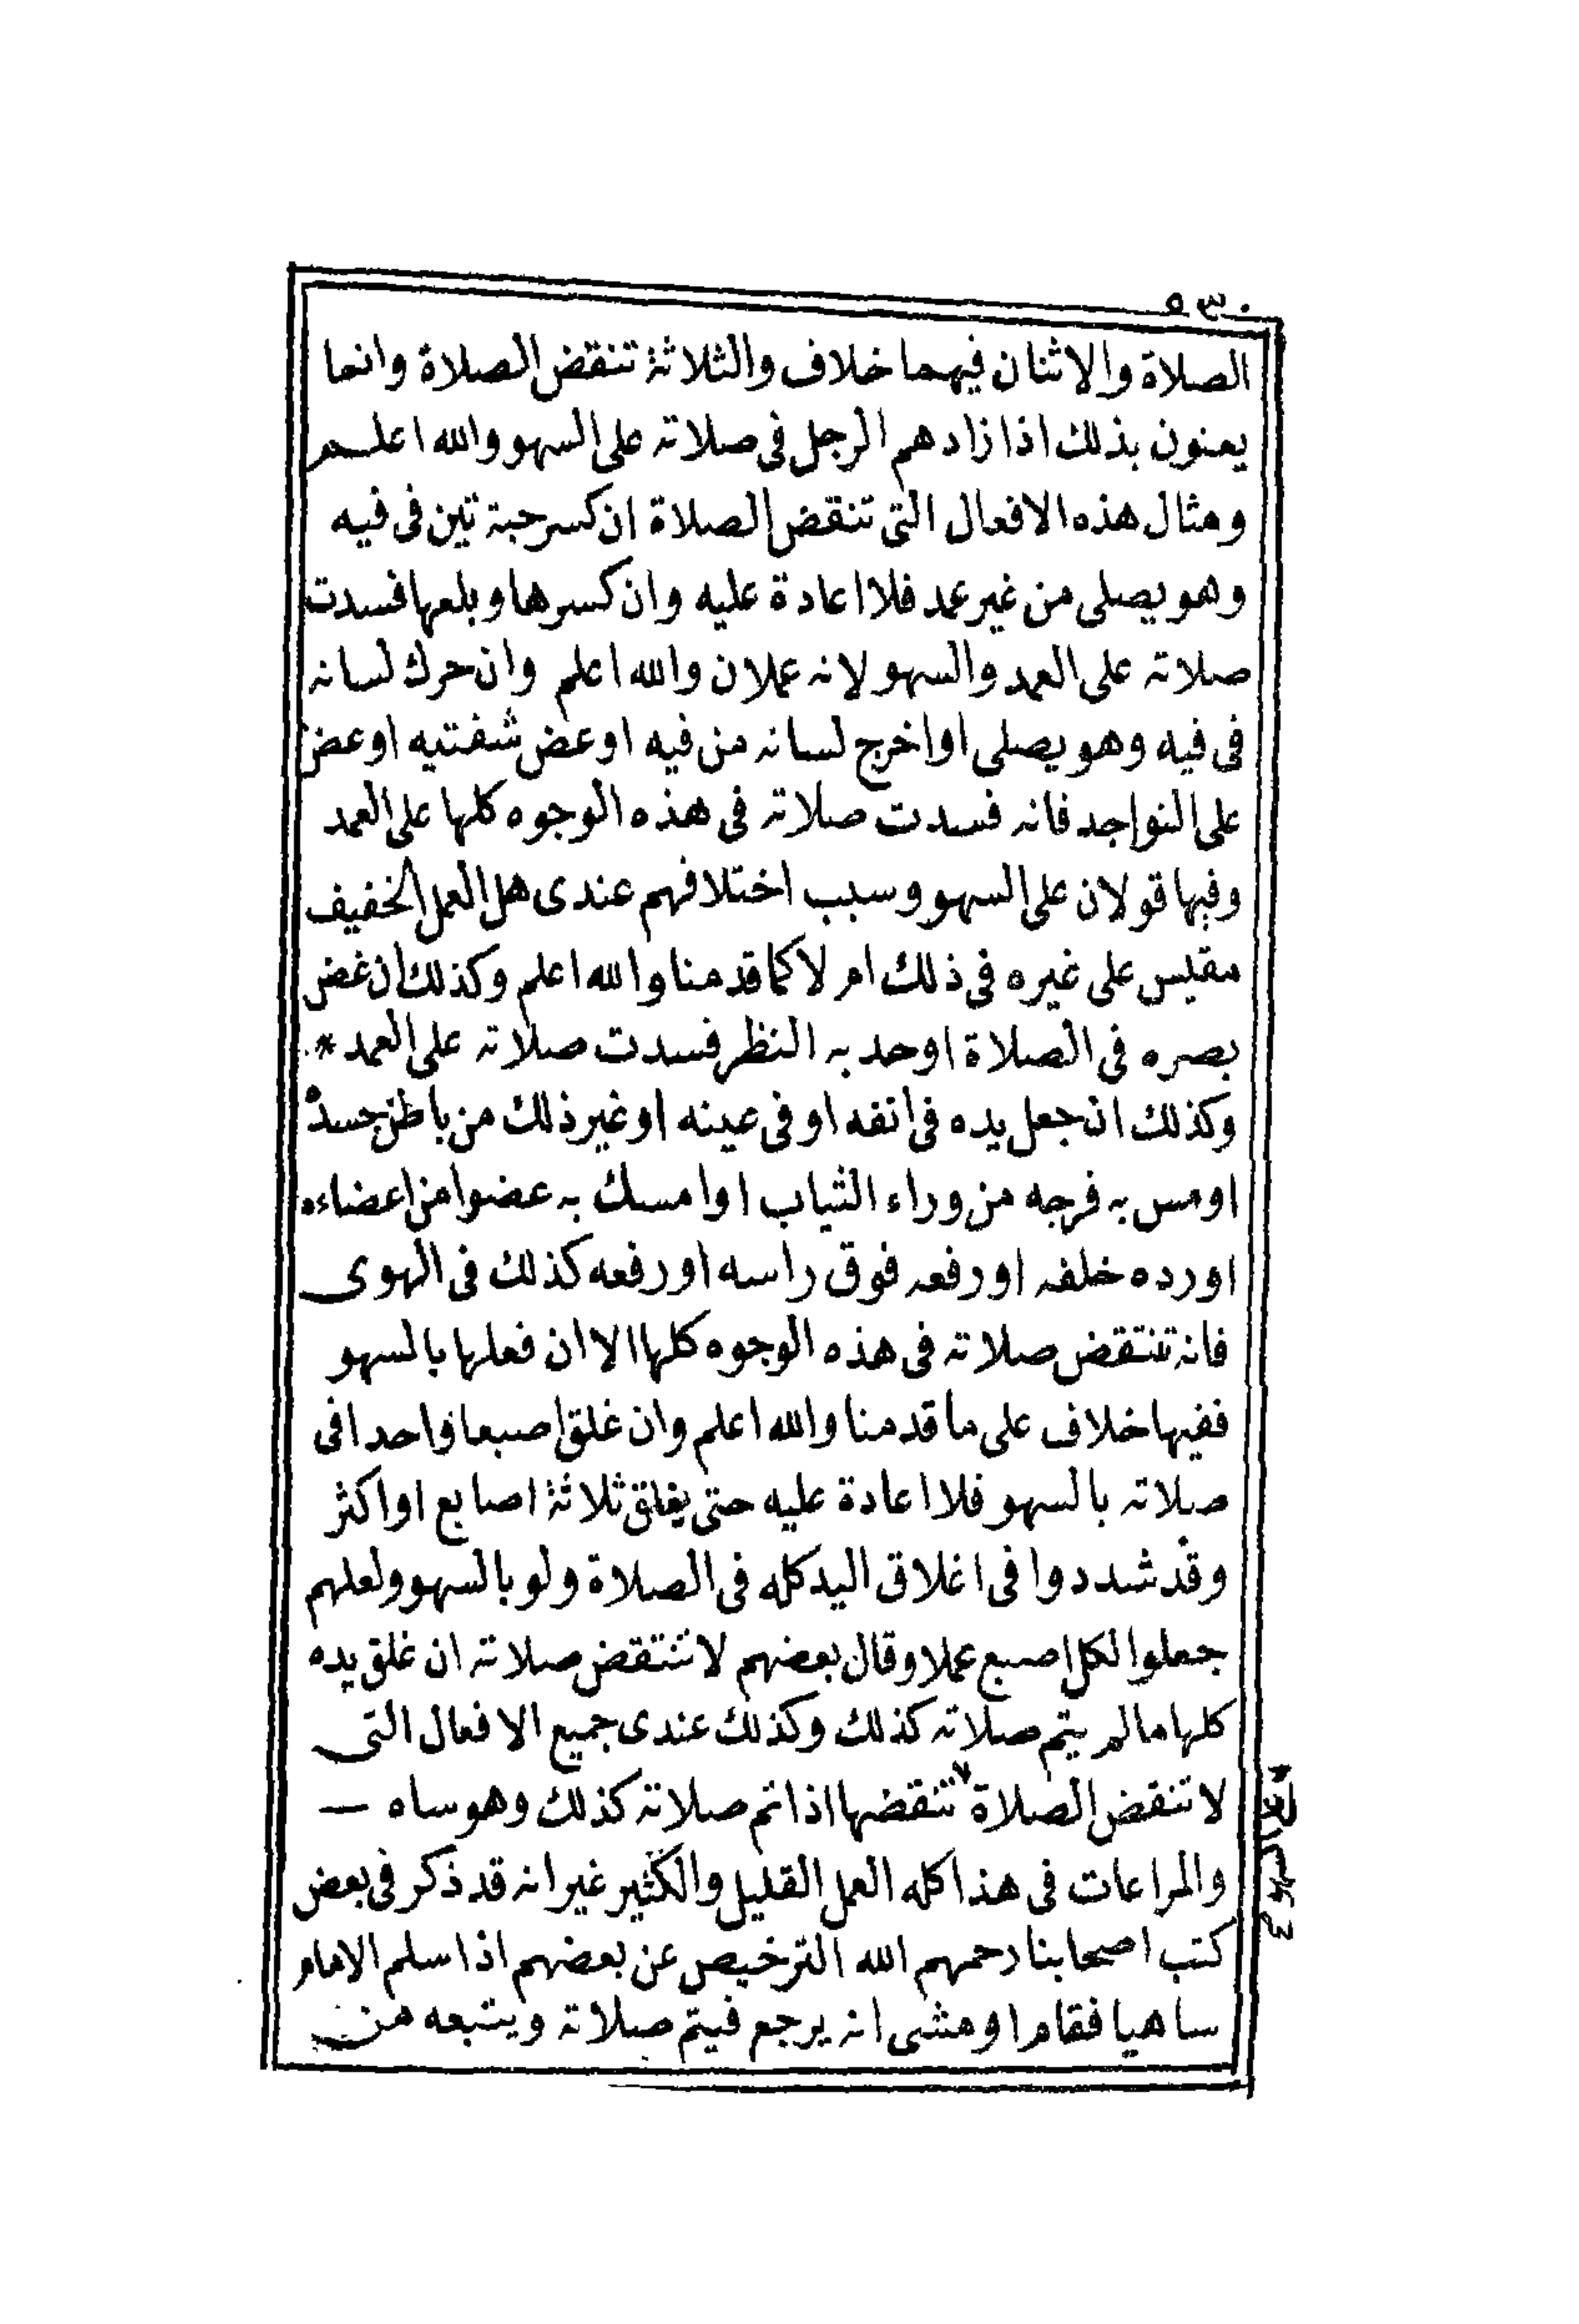 ٥٣٠
الصلاة والاثنان فيهما خلاف والثلاثة تنقض الصلاة وانما
يعنون بذلك اذا زادهم الرجل فى صلاته على السهو والله اعلم
ومثال هذه الافعال التى تنقض الصلاة ان كسر حبة تين فى فيه
وهو يصلى من غير عمد فلا اعادة عليه وان كسرها وبلعها فسدت
صلاته على العمد والسهو لانه عملان والله اعلم وان حرك لسانه
فى فيه وهو يصلى او اخرج لسانه من فيه او عض شفتيه او عض
على النواجد فانه فسدت صلاته فى هذه الوجوه كلها على العمد
وفيها قولان على السهو وسبب اختلافهم عندى هل العمل الخفيف
مقيس على غيره فى ذلك ام لا كما قدمنا والله اعلم وكذلك ان غض
بصره فى الصلاة او حد به النظر فسدت صلاته على العمد *
وكذلك ان جعل يده فى انفه او فى عينه او غير ذلك من باطن جسده
او مس به فرجه من وراء الثياب او امسك به عضوا من اعضاءه
او رده خلفه او رفعه فوق راسه او رفعه كذلك فى الهوى
فانه تنتقض صلاته فى هذه الوجوه كلها الا ان فعلها بالسهو
ففيها خلاف على ما قدمنا والله اعلم وان غلق اصبعا واحدا فى
صلاته بالسهو فلا اعادة عليه حتى يغلق ثلاثة اصابع او اكثر
وقد شددوا فى اغلاق اليد كله فى الصلاة ولو بالسهو ولعلهم
جعلوا لكل اصبع عملا وقال بعضهم لا تنتقض صلاته ان غلق يده
كلها ما لم يتم صلاته كذلك وكذلك عندى جميع الافعال التى
لا تنقض الصلاة تنقضها اذا تم صلاته كذلك وهو ساه
والمراعات فى هذا كله العمل القليل والكثير غير انه قد ذكر فى بعض
كتب اصحابنا رحمهم الله الترخيص عن بعضهم اذا سلم الامام
ساهيا فقام او مشى انه يرجع فيتم صلاته ويتبعه من